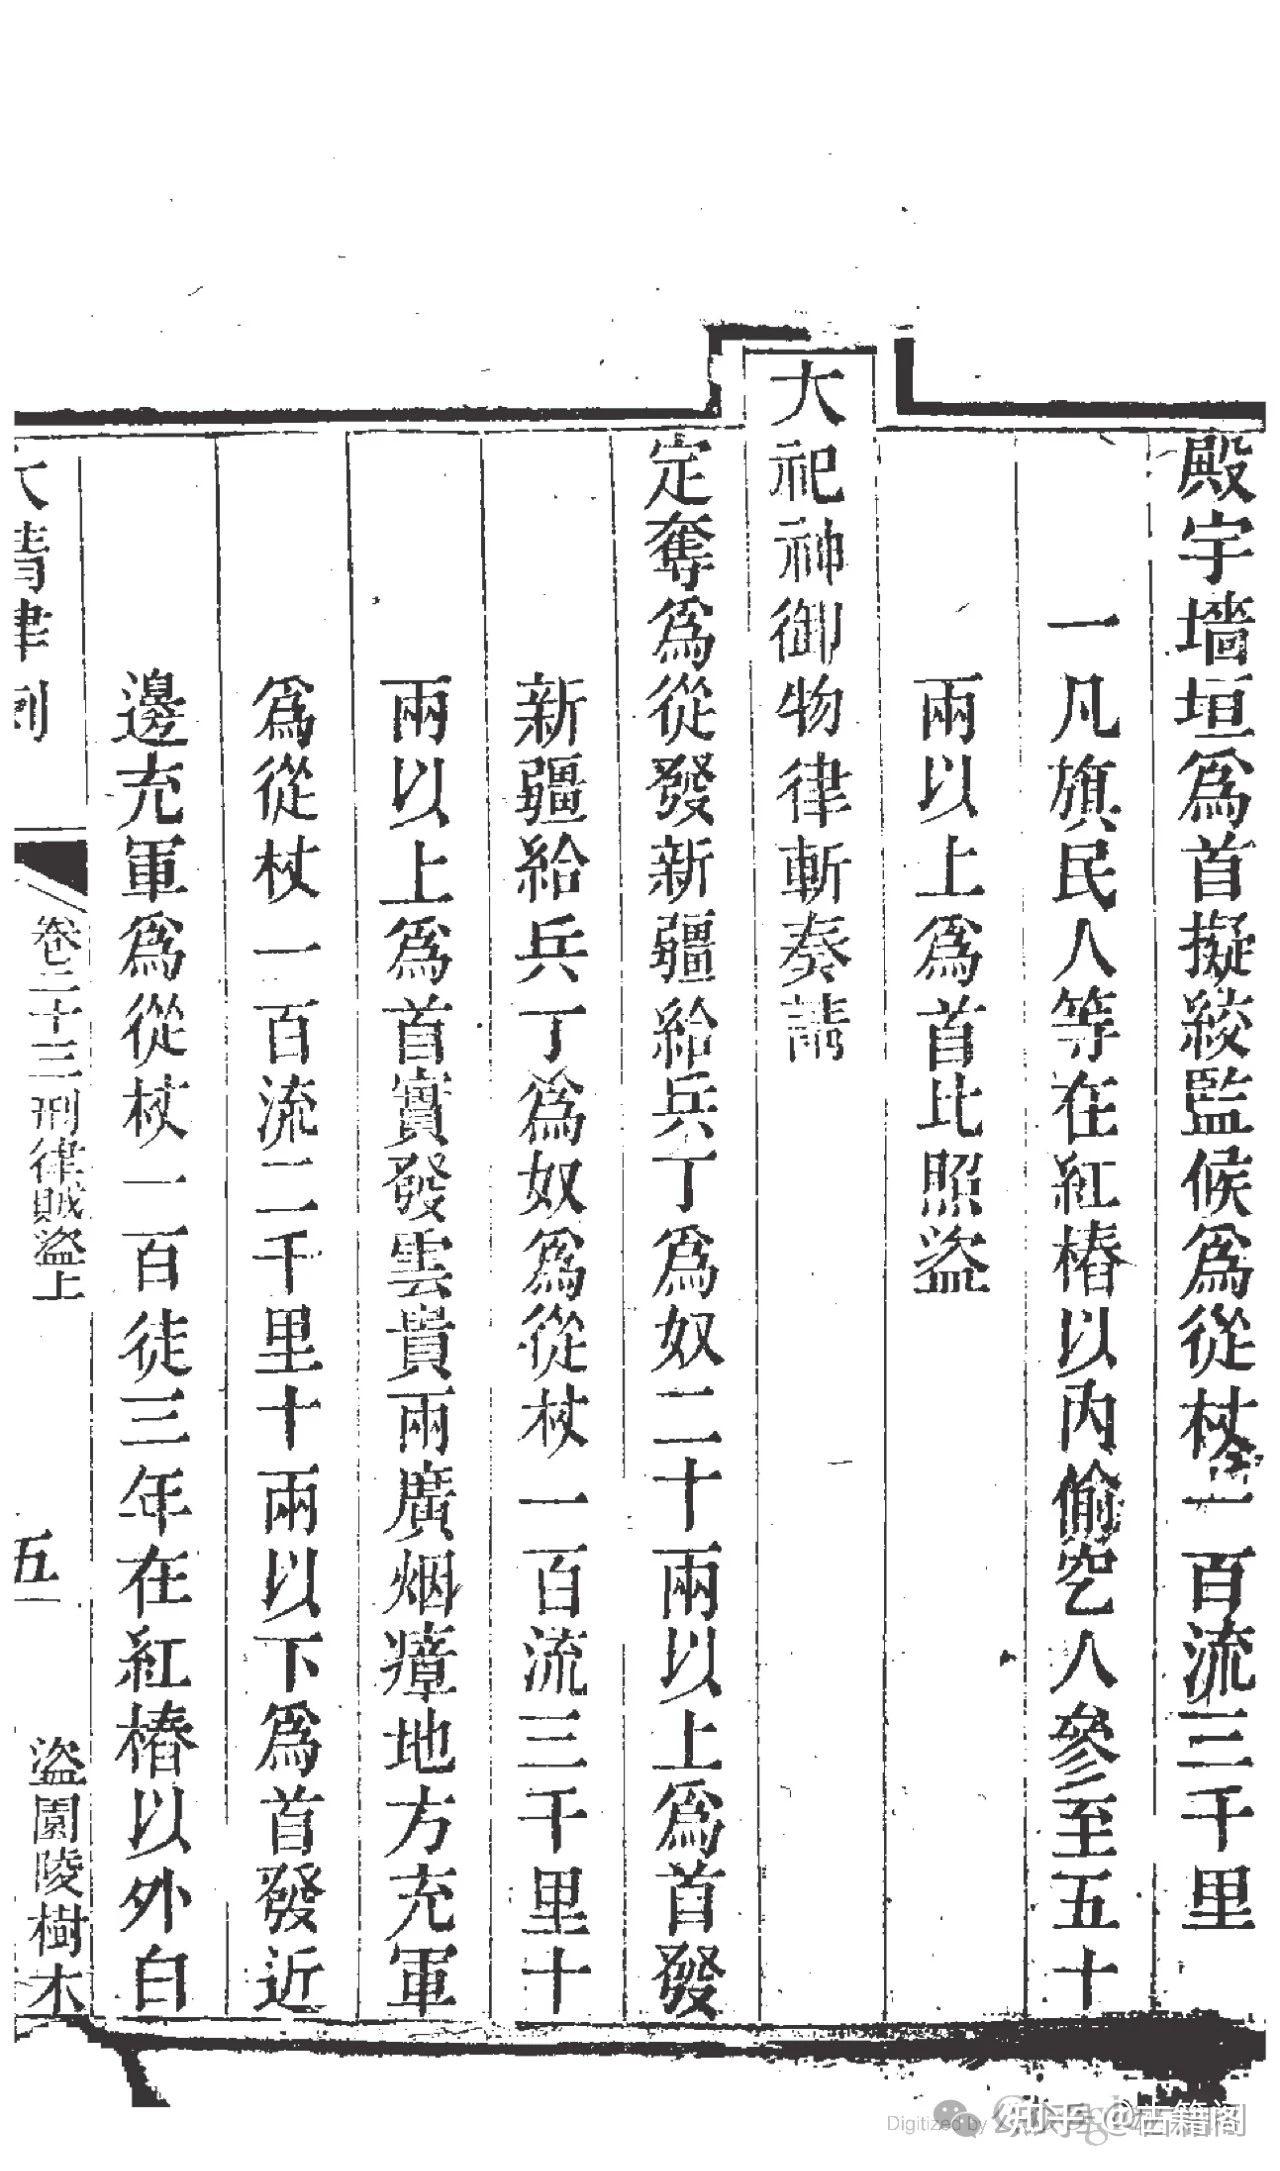 殿宇墻垣爲首擬絞監候爲從杖一百流三千里
一凡旗民人等在紅樁以內偷空人參至五十
兩以上爲首比照盜
大祀神御物律斬奏請
定奪爲從發新疆給兵丁爲奴二十兩以上爲首發
新疆給兵丁爲奴爲從杖一百流三千里十
兩以上爲首實發雲貴兩廣烟瘴地方充軍
爲從杖一百流二千里十兩以下爲首發近
邊充軍爲從杖一百徒三年在紅樁以外白
大清律例 卷二十三刑律賊盜上 五 盜園陵樹木
Digitized by
知乎 @古籍阁